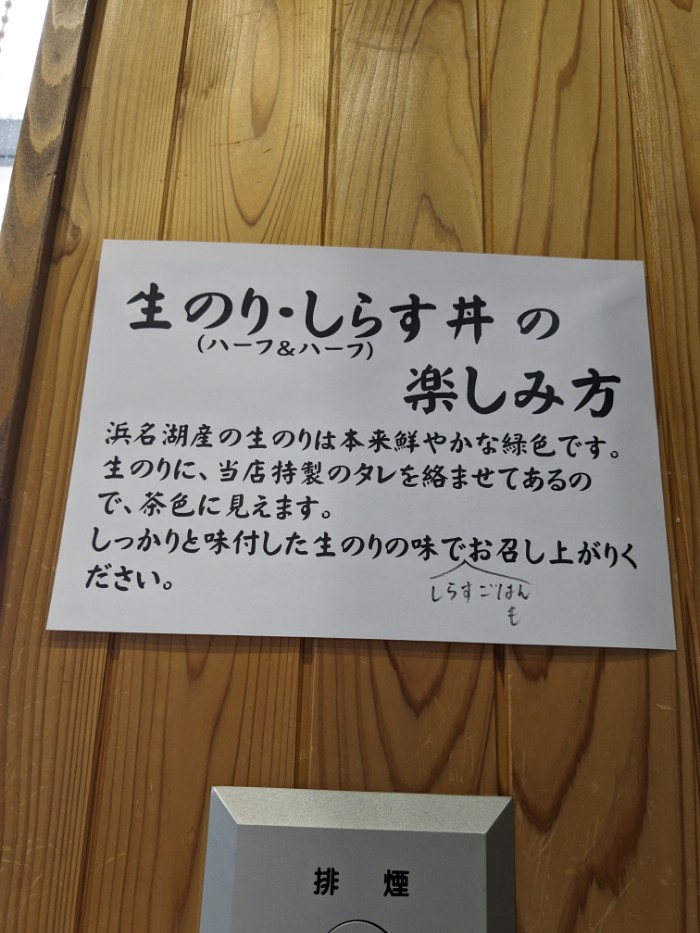 生のり・しらす丼の
(ハーフ&ハーフ)
楽しみ方
浜名湖産の生のりは本来鮮やかな緑色です。
生のりに、当店特製のタレを絡ませてあるの
で、茶色に見えます。
しっかりと味付した生のりの味でお召し上がりく
ださい。
しらすごはん
も
排煙